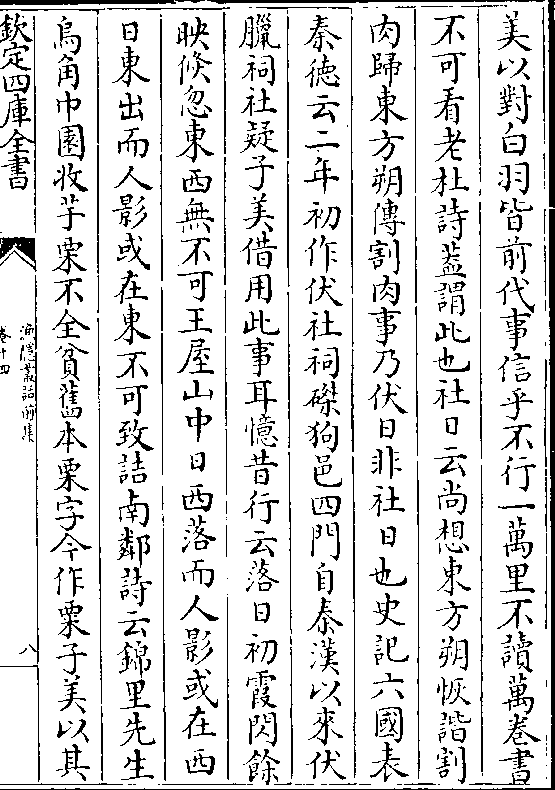 美以對白羽皆前代事信乎不行一萬里不讀萬卷書
不可看老杜詩葢謂此也社日云尚想東方朔恢諧割
肉歸東方朔傳割肉事乃伏日非社日也史記六國表
秦德云二年初作伏社祠磔狗邑四門自秦漢以來伏
臘祠社疑子美借用此事耳憶昔行云落日初霞閃餘
映倏忽東西無不可王屋山中日西落而人影或在西
日東出而人影或在東不可致詰南鄰詩云錦里先生
烏角巾園收芋栗不全貧舊本栗字今作粟子美以其
欽定四庫全書
漁隱叢話前集
卷十四
八